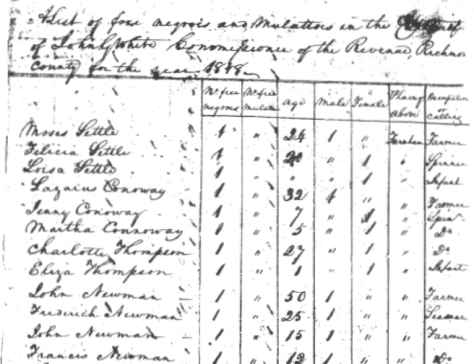 A List of free negroes and Mulattoes in the District
of John G White Commissioner of the Revenue, Richmond
County for the year 1818
Nº free negroes Nº free mulattoes Age Male Female Places Abode Occupation calling
Moses Settle 1 " 24 1 " Farnham Farmer
Felicia Settle 1 " 20 " 1 " Spinner
Loisa Settle 1 " " " 1 " Infant
Lazarus Conoway 1 " 32 1 " " Farmer
Jenny Conoway 1 " 7 " 1 " Spinr
Martha Connoway 1 " 5 " 1 " Do
Charlotte Thompson 1 " 27 " 1 " Do
Eliza Thompson 1 " 1 " 1 " Infant
John Newman 1 " 50 1 " " Farmer
Frederick Newman 1 " 25 1 " " Seaman
John Newman 1 " 15 1 " " Farmer
Francis Newman 1 " 12 1 " " Do